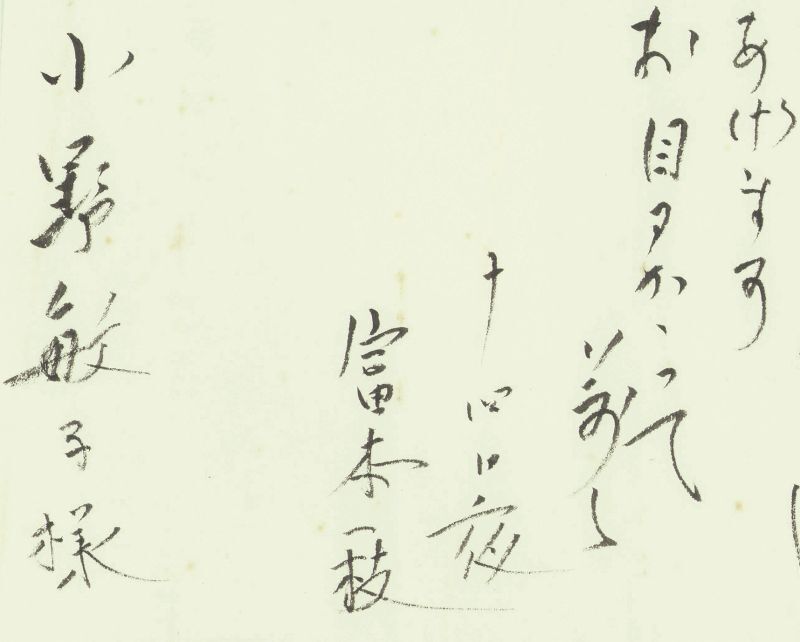 あげます
お目にかゝって
いろ〳〵
十四日夜
富本一枝
小野敏子様